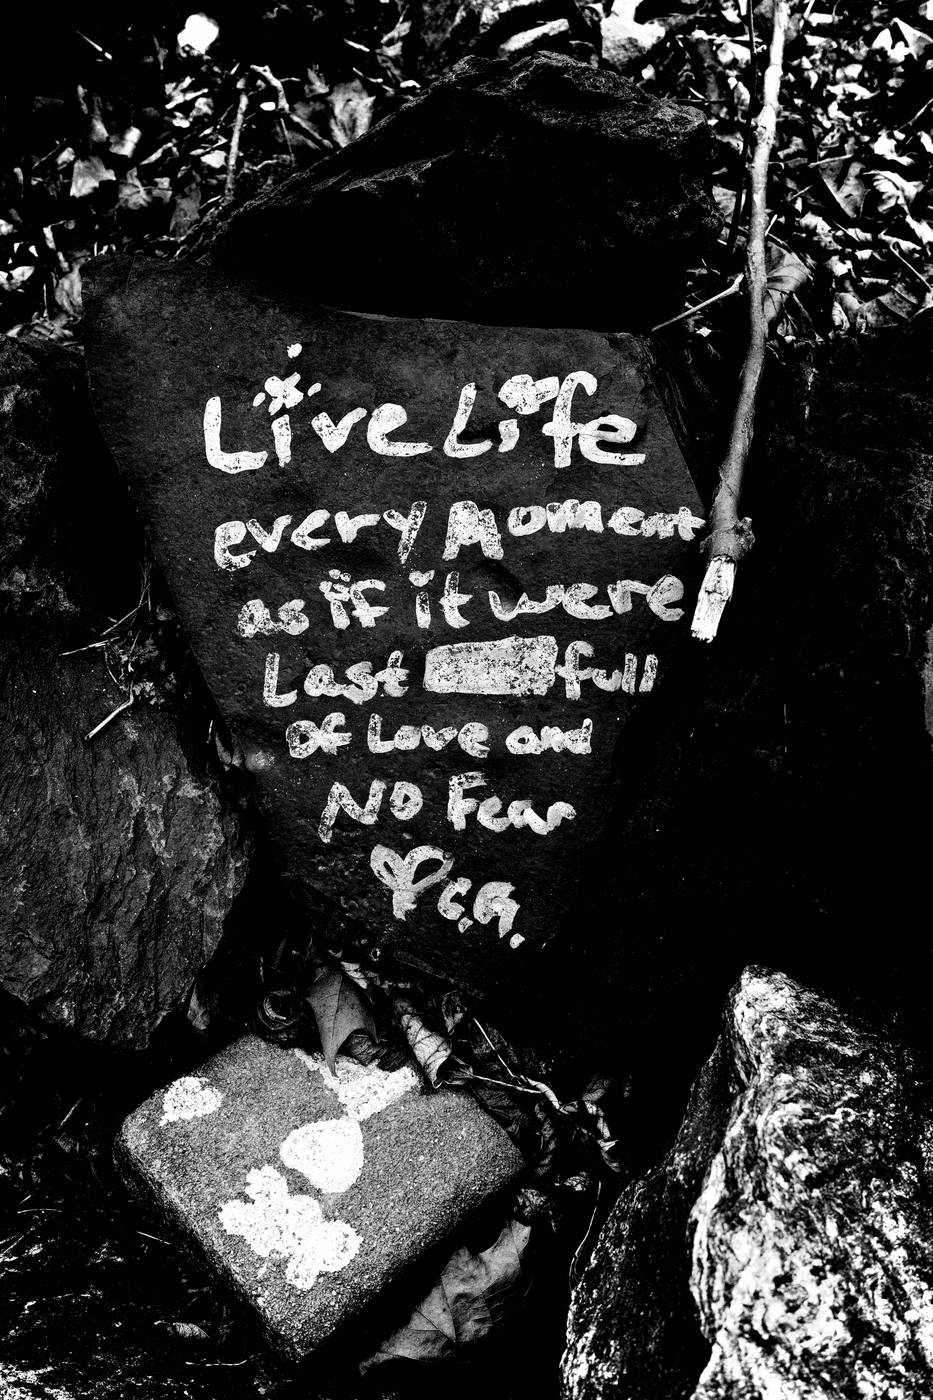 Live Life
every Moment
as if it were
Last full
Of Love and
NO Fear
G.G.